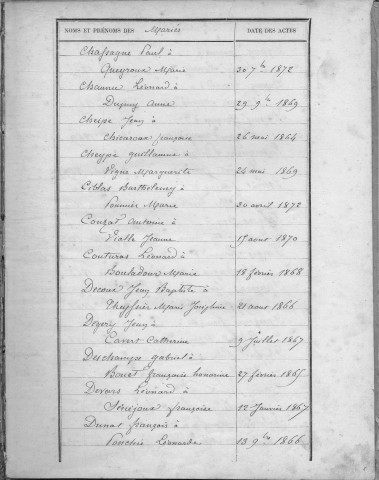 NOMS ET PRÉNOMS DES Mariés DATE DES ACTES
Chassagne Paul à
Queyroux Marie 20 7bre 1872
Léonard à
Dupuy Anne 29 9bre 1869
Cheipe Jean à
Chicaroux françoise 26 mai 1864
Cheype guillaume à
Vigne Marguerite 24 mai 1869
Ciblas Barthelemy à
Marie 20 avril 1872
Couzat Antoine à
Vialle Jeanne 15 aout 1870
Couturas Léonard à
Bouladoux Marie 18 février 1868
Decoux Jean Baptiste à
Marie 21 aout 1866
Jean à
Catherine 9 Juillet 1867
Deschamps gabriel à
Bouet françoise honorine 27 février 1865
Devers Léonard à
Sénéjoux françoise 12 Janvier 1867
françois à
Léonarde 13 9bre 1866